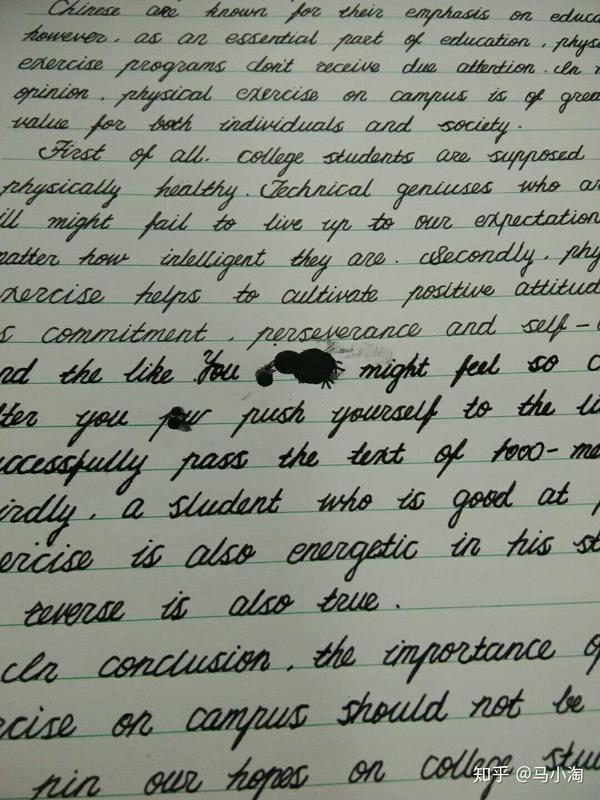 Chinese are known for their emphasis on educa
however, as an essential part of education, phys
exercise programs don't receive due attention. In
opinion, physical exercise on campus is of grea
value for both individuals and society.
First of all. college students are supposed
physically healthy. Technical geniuses who a
ill might fail to live up to our expectation
matter how intelligent they are. Secondly, phy
exercise helps to cultivate positive attitud
s commitment, perseverance and self-
nd the like. You might feel so
fter you push yourself to the li
uccessfully pass the text of 1000-me
irdly, a student who is good at
ercise is also energetic in his st
reverse is also true.
In conclusion, the importance o
rcise on campus should not be
pin our hopes on college stu
知乎 @马小淘